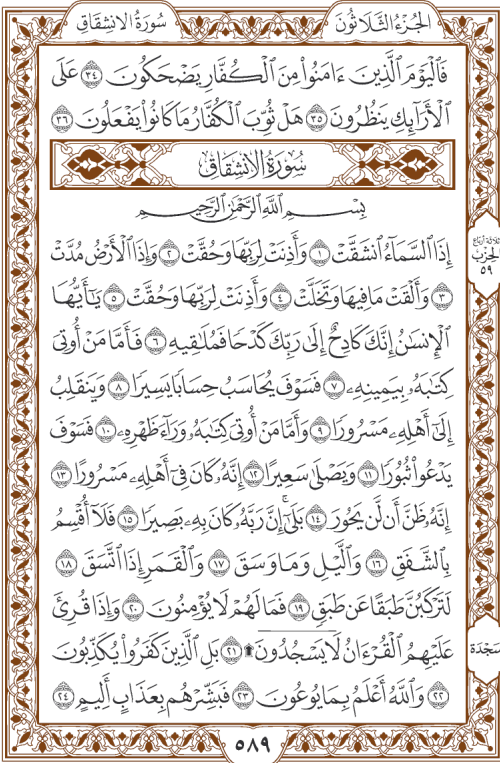 سُورَةُ الانشِقَاقِ الجُزْءُ الثَّلَاثُونَ
فَٱلْيَوْمَ ٱلَّذِينَ ءَامَنُوا۟ مِنَ ٱلْكُفَّارِ يَضْحَكُونَ ٣٤ عَلَى
ٱلْأَرَآئِكِ يَنظُرُونَ ٣٥ هَلْ ثُوِّبَ ٱلْكُفَّارُ مَا كَانُوا۟ يَفْعَلُونَ ٣٦
سُورَةُ الانشِقَاقِ
بِسْمِ ٱللَّهِ ٱلرَّحْمَٰنِ ٱلرَّحِيمِ
إِذَا ٱلسَّمَآءُ ٱنشَقَّتْ ١ وَأَذِنَتْ لِرَبِّهَا وَحُقَّتْ ٢ وَإِذَا ٱلْأَرْضُ مُدَّتْ
٣ وَأَلْقَتْ مَا فِيهَا وَتَخَلَّتْ ٤ وَأَذِنَتْ لِرَبِّهَا وَحُقَّتْ ٥ يَٰٓأَيُّهَا
ٱلْإِنسَٰنُ إِنَّكَ كَادِحٌ إِلَىٰ رَبِّكَ كَدْحًا فَمُلَٰقِيهِ ٦ فَأَمَّا مَنْ أُوتِىَ
كِتَٰبَهُۥ بِيَمِينِهِۦ ٧ فَسَوْفَ يُحَاسَبُ حِسَابًا يَسِيرًا ٨ وَيَنقَلِبُ
إِلَىٰٓ أَهْلِهِۦ مَسْرُورًا ٩ وَأَمَّا مَنْ أُوتِىَ كِتَٰبَهُۥ وَرَآءَ ظَهْرِهِۦ ١٠ فَسَوْفَ
يَدْعُوا۟ ثُبُورًا ١١ وَيَصْلَىٰ سَعِيرًا ١٢ إِنَّهُۥ كَانَ فِىٓ أَهْلِهِۦ مَسْرُورًا ١٣
إِنَّهُۥ ظَنَّ أَن لَّن يَحُورَ ١٤ بَلَىٰٓۚ إِنَّ رَبَّهُۥ كَانَ بِهِۦ بَصِيرًا ١٥ فَلَآ أُقْسِمُ
بِٱلشَّفَقِ ١٦ وَٱلَّيْلِ وَمَا وَسَقَ ١٧ وَٱلْقَمَرِ إِذَا ٱتَّسَقَ ١٨
لَتَرْكَبُنَّ طَبَقًا عَن طَبَقٍ ١٩ فَمَا لَهُمْ لَا يُؤْمِنُونَ ٢٠ وَإِذَا قُرِئَ
عَلَيْهِمُ ٱلْقُرْءَانُ لَا يَسْجُدُونَ ۩ ٢١ بَلِ ٱلَّذِينَ كَفَرُوا۟ يُكَذِّبُونَ
٢٢ وَٱللَّهُ أَعْلَمُ بِمَا يُوعُونَ ٢٣ فَبَشِّرْهُم بِعَذَابٍ أَلِيمٍ ٢٤
ثلاثة أرباع
الحِزْب
٥٩
سَجْدَة
٥٨٩